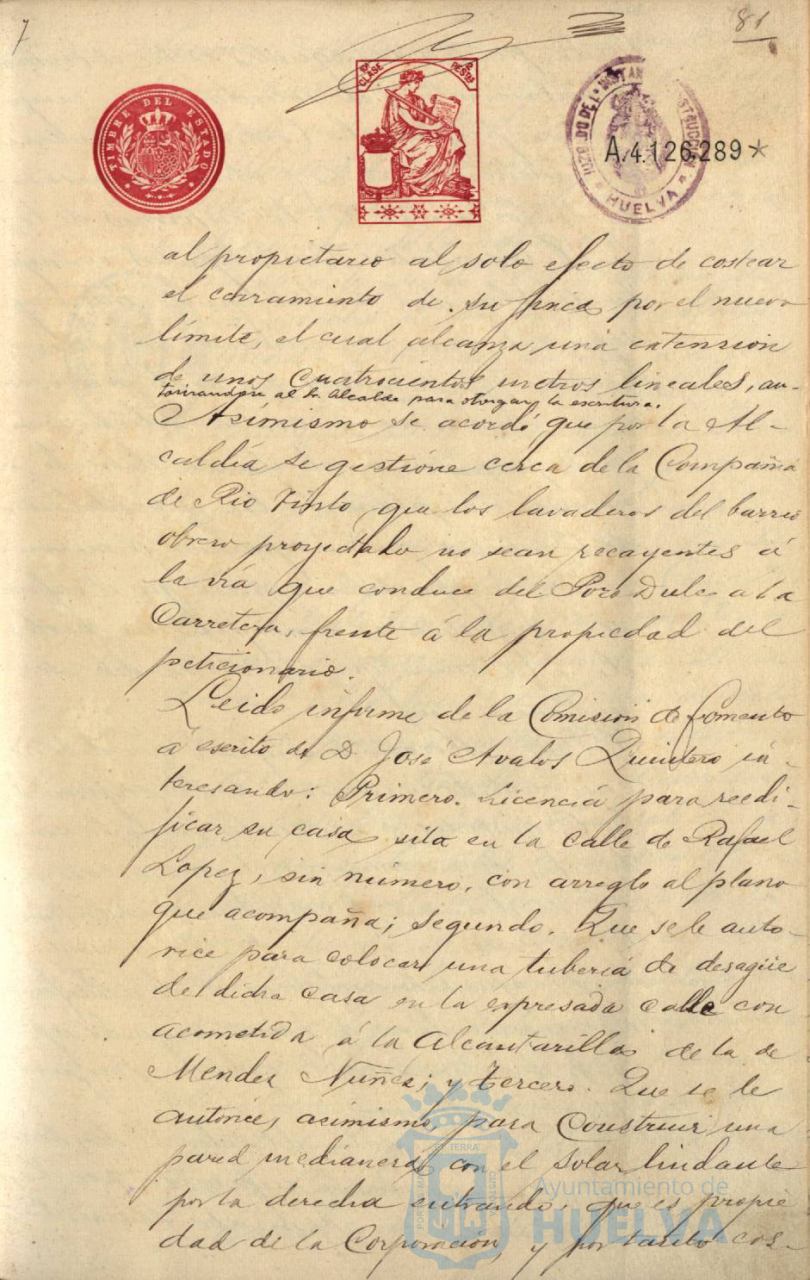 7
81
TIMBRE DEL ESTADO
8ª CLASE
2 PESETAS
JUZGADO DE 1ª INSTANCIA INSTRUCCION
HUELVA
A.4.126.289*
al propietario al solo efecto de costear
el cerramiento de su finca por el nuevo
límite, el cual alcanza una extension
de unos cuatrocientos metros lineales, au-
torizandose al Sr Alcalde para otorgar la escritura.
Asimismo se acordó que por la Al-
caldía se gestione cerca de la Compañia
de Rio Tinto que los lavaderos del barrio
obrero proyectado no sean recayentes á
la vía que conduce del Pozo Dulce a la
Carretera, frente á la propiedad del
peticionario.
Leido informe de la Comisión de Fomento
á escrito de D. José Avalos Quintero in-
teresando: Primero. Licencia para reedi-
ficar su casa sita en la calle de Rafael
Lopez, sin número, con arreglo al plano
que acompaña; segundo. Que se le auto-
rice para colocar una tubería de desagüe
de dicha casa en la expresada calle con
acometida á la Alcantarilla de la de
Mendez Nuñez; y tercero. Que se le
autorice, asimismo, para construir una
pared medianera con el solar lindante
por la derecha entrando, que es propie
dad de la Corporación, y por tanto cos-
Ayuntamiento de
HUELVA